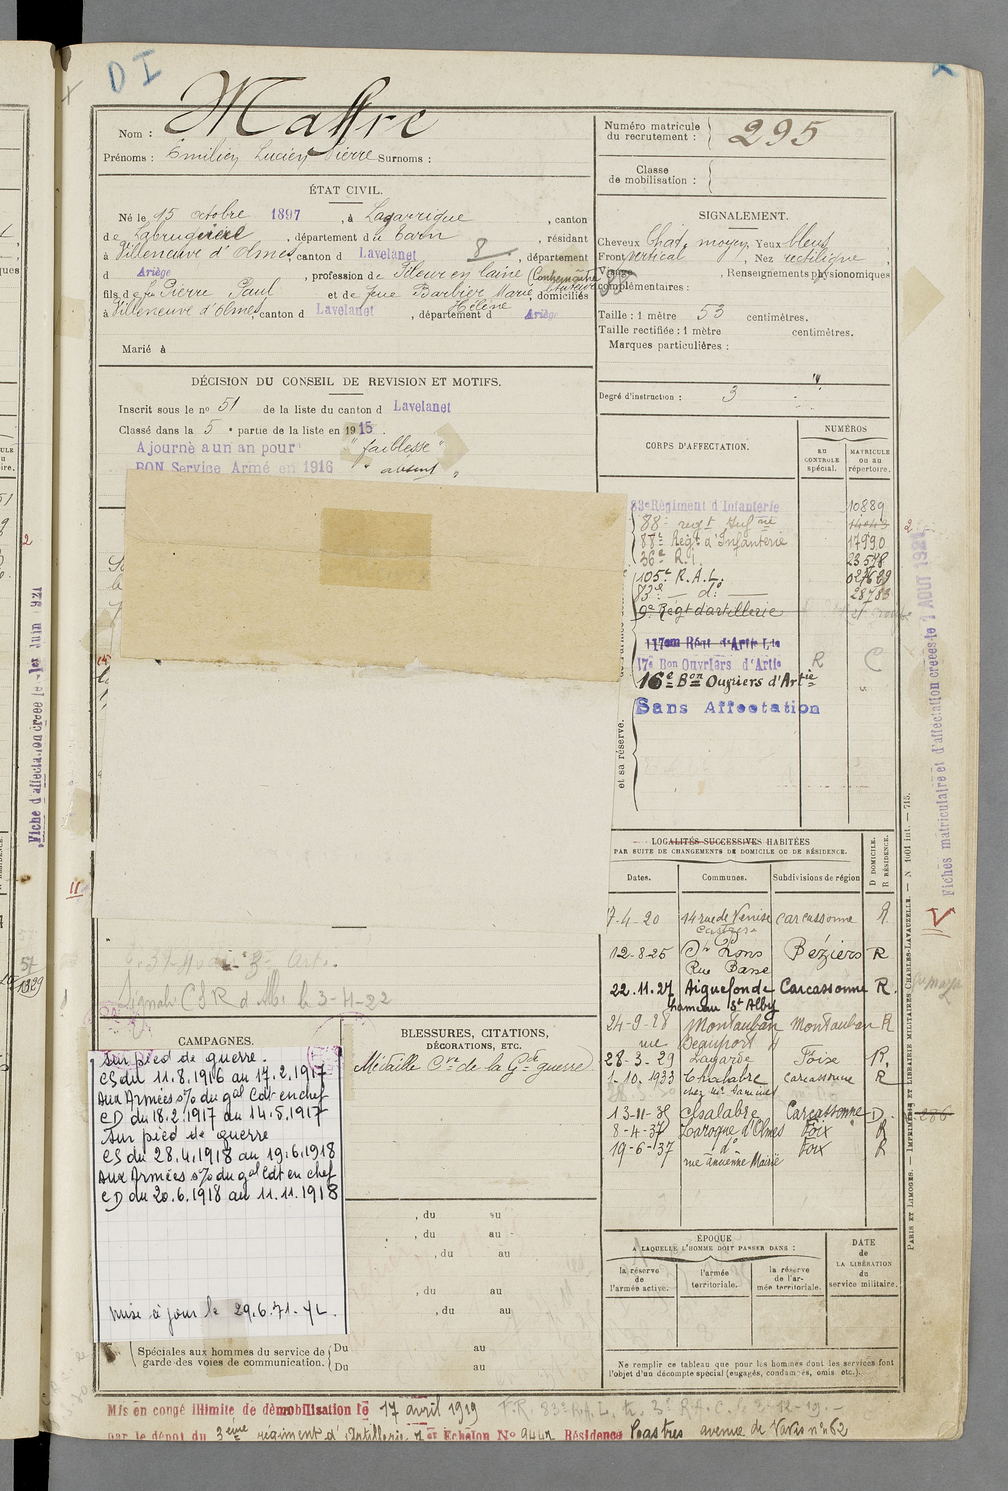 D I
Nom : Maffre
Prénoms : Emilien Lucien Pierre Surnoms :
ÉTAT CIVIL.
Né le 15 octobre 1897, à Lagarrigue, canton
de Labruguière, département du Tarn, résidant
à Villeneuve d'Olmes, canton d Lavelanet 8, département
d Ariège, profession de Fileur en laine (Contremaître
fils de feu Pierre Paul et de feue Barbier Marie, domiciliés
Hélène
à Villeneuve d'Olmes, canton d Lavelanet, département d Ariège
Marié à
DÉCISION DU CONSEIL DE REVISION ET MOTIFS.
Inscrit sous le n° 51 de la liste du canton d Lavelanet
Classé dans la 5e partie de la liste en 1915.
Ajourné a un an pour "faiblesse"
BON Service Armé en 1916 "absent"
Numéro matricule
du recrutement : 295
Classe
de mobilisation :
SIGNALEMENT.
Cheveux Chat. moyen, Yeux bleus
Front vertical, Nez rectiligne,
Visage, Renseignements physionomiques
complémentaires :
Taille : 1 mètre 53 centimètres.
Taille rectifiée : 1 mètre centimètres.
Marques particulières :
Degré d'instruction : 3
CORPS D'AFFECTATION.
NUMÉROS
AU CONTROLE spécial.
MATRICULE ou au répertoire.
83e Régiment d'Infanterie 10889
88e regt Infrie
88e Régt d'Infanterie 17990
36e R.I. 23578
105e R.A.L.
83e — d° — 28783
9e Régt d'artillerie
117em Régt d'Artie Lde
17e Bon Ouvriers d'Artie R C
16e Bon Ouvriers d'Artie
Sans Affectation
et sa réserve.
LOCALITÉS SUCCESSIVES HABITÉES
PAR SUITE DE CHANGEMENTS DE DOMICILE OU DE RÉSIDENCE.
D DOMICILE.
R RÉSIDENCE.
Dates. Communes. Subdivisions de région
7-4-20 14 rue de Venise Carcassonne R
Castres
12-8-25 St Pons Béziers R
Rue Basse
22.11.27 Aiguefonde Carcassonne R.
hameau St Alby
24-9-28 Montauban Montauban R
rue Beauport
28-3-29 Lagarde Foix R.
1-10.1933 Chalabre Carcassonne R
13-11-35 Chalabre Carcassonne D.
8-4-37 Laroque d'Olmes Foix R
19-6-37 d° Foix R
rue ancienne Mairie
ÉPOQUE
A LAQUELLE L'HOMME DOIT PASSER DANS :
la réserve de l'armée active.
l'armée territoriale.
la réserve de l'armée territoriale.
DATE de LA LIBÉRATION du service militaire.
Ne remplir ce tableau que pour les hommes dont les services font
l'objet d'un décompte spécial (engagés, condamnés, omis, etc.).
Signalé C.S.R d'Albi le 3-4-22
CAMPAGNES.
Sur pied de guerre.
CS du 11.8.1916 au 17.2.1917
Aux Armées s/s du gal Cdt en chef
CD du 18.2.1917 au 14.5.1917
Sur pied de guerre
CS du 28.4.1918 au 19.6.1918
Aux Armées s/s du gal Cdt en chef
CD du 20.6.1918 au 11.11.1918
mise à jour le 29.6.71. YL.
BLESSURES, CITATIONS,
DÉCORATIONS, ETC.
Médaille Cve de la Gde guerre
, du au
, du au
, du au
, du au
, du au
Spéciales aux hommes du service de
garde des voies de communication.
Du au
Du au
Mis en congé illimité de démobilisation le 17 avril 1919 F.R. 83e R.A.L.
par le dépôt du 3ème régiment d'Artillerie, 7e Echelon N° 9441 Résidence Castres avenue de Paris n° 62
Fiche d'affectation créée le 1er Juin 1921
Fiches matriculaire et d'affectation créées le 1 AOUT 1921
PARIS ET LIMOGES. — IMPRIMERIE ET LIBRAIRIE MILITAIRES CHARLES-LAVAUZELLE. — N 1601 int. — 715.